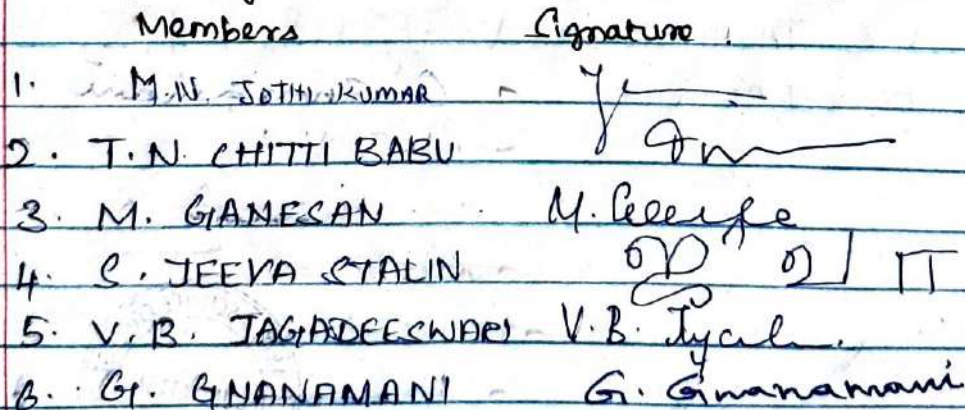 Members Signature.
1. M.N. JOTHI KUMAR
2. T.N. CHITTI BABU
3. M. GANESAN
4. S. JEEVA STALIN ஜீவா
5. V.B. JAGADEESWARI V.B.
6. G. GNANAMANI G. Gnanamani